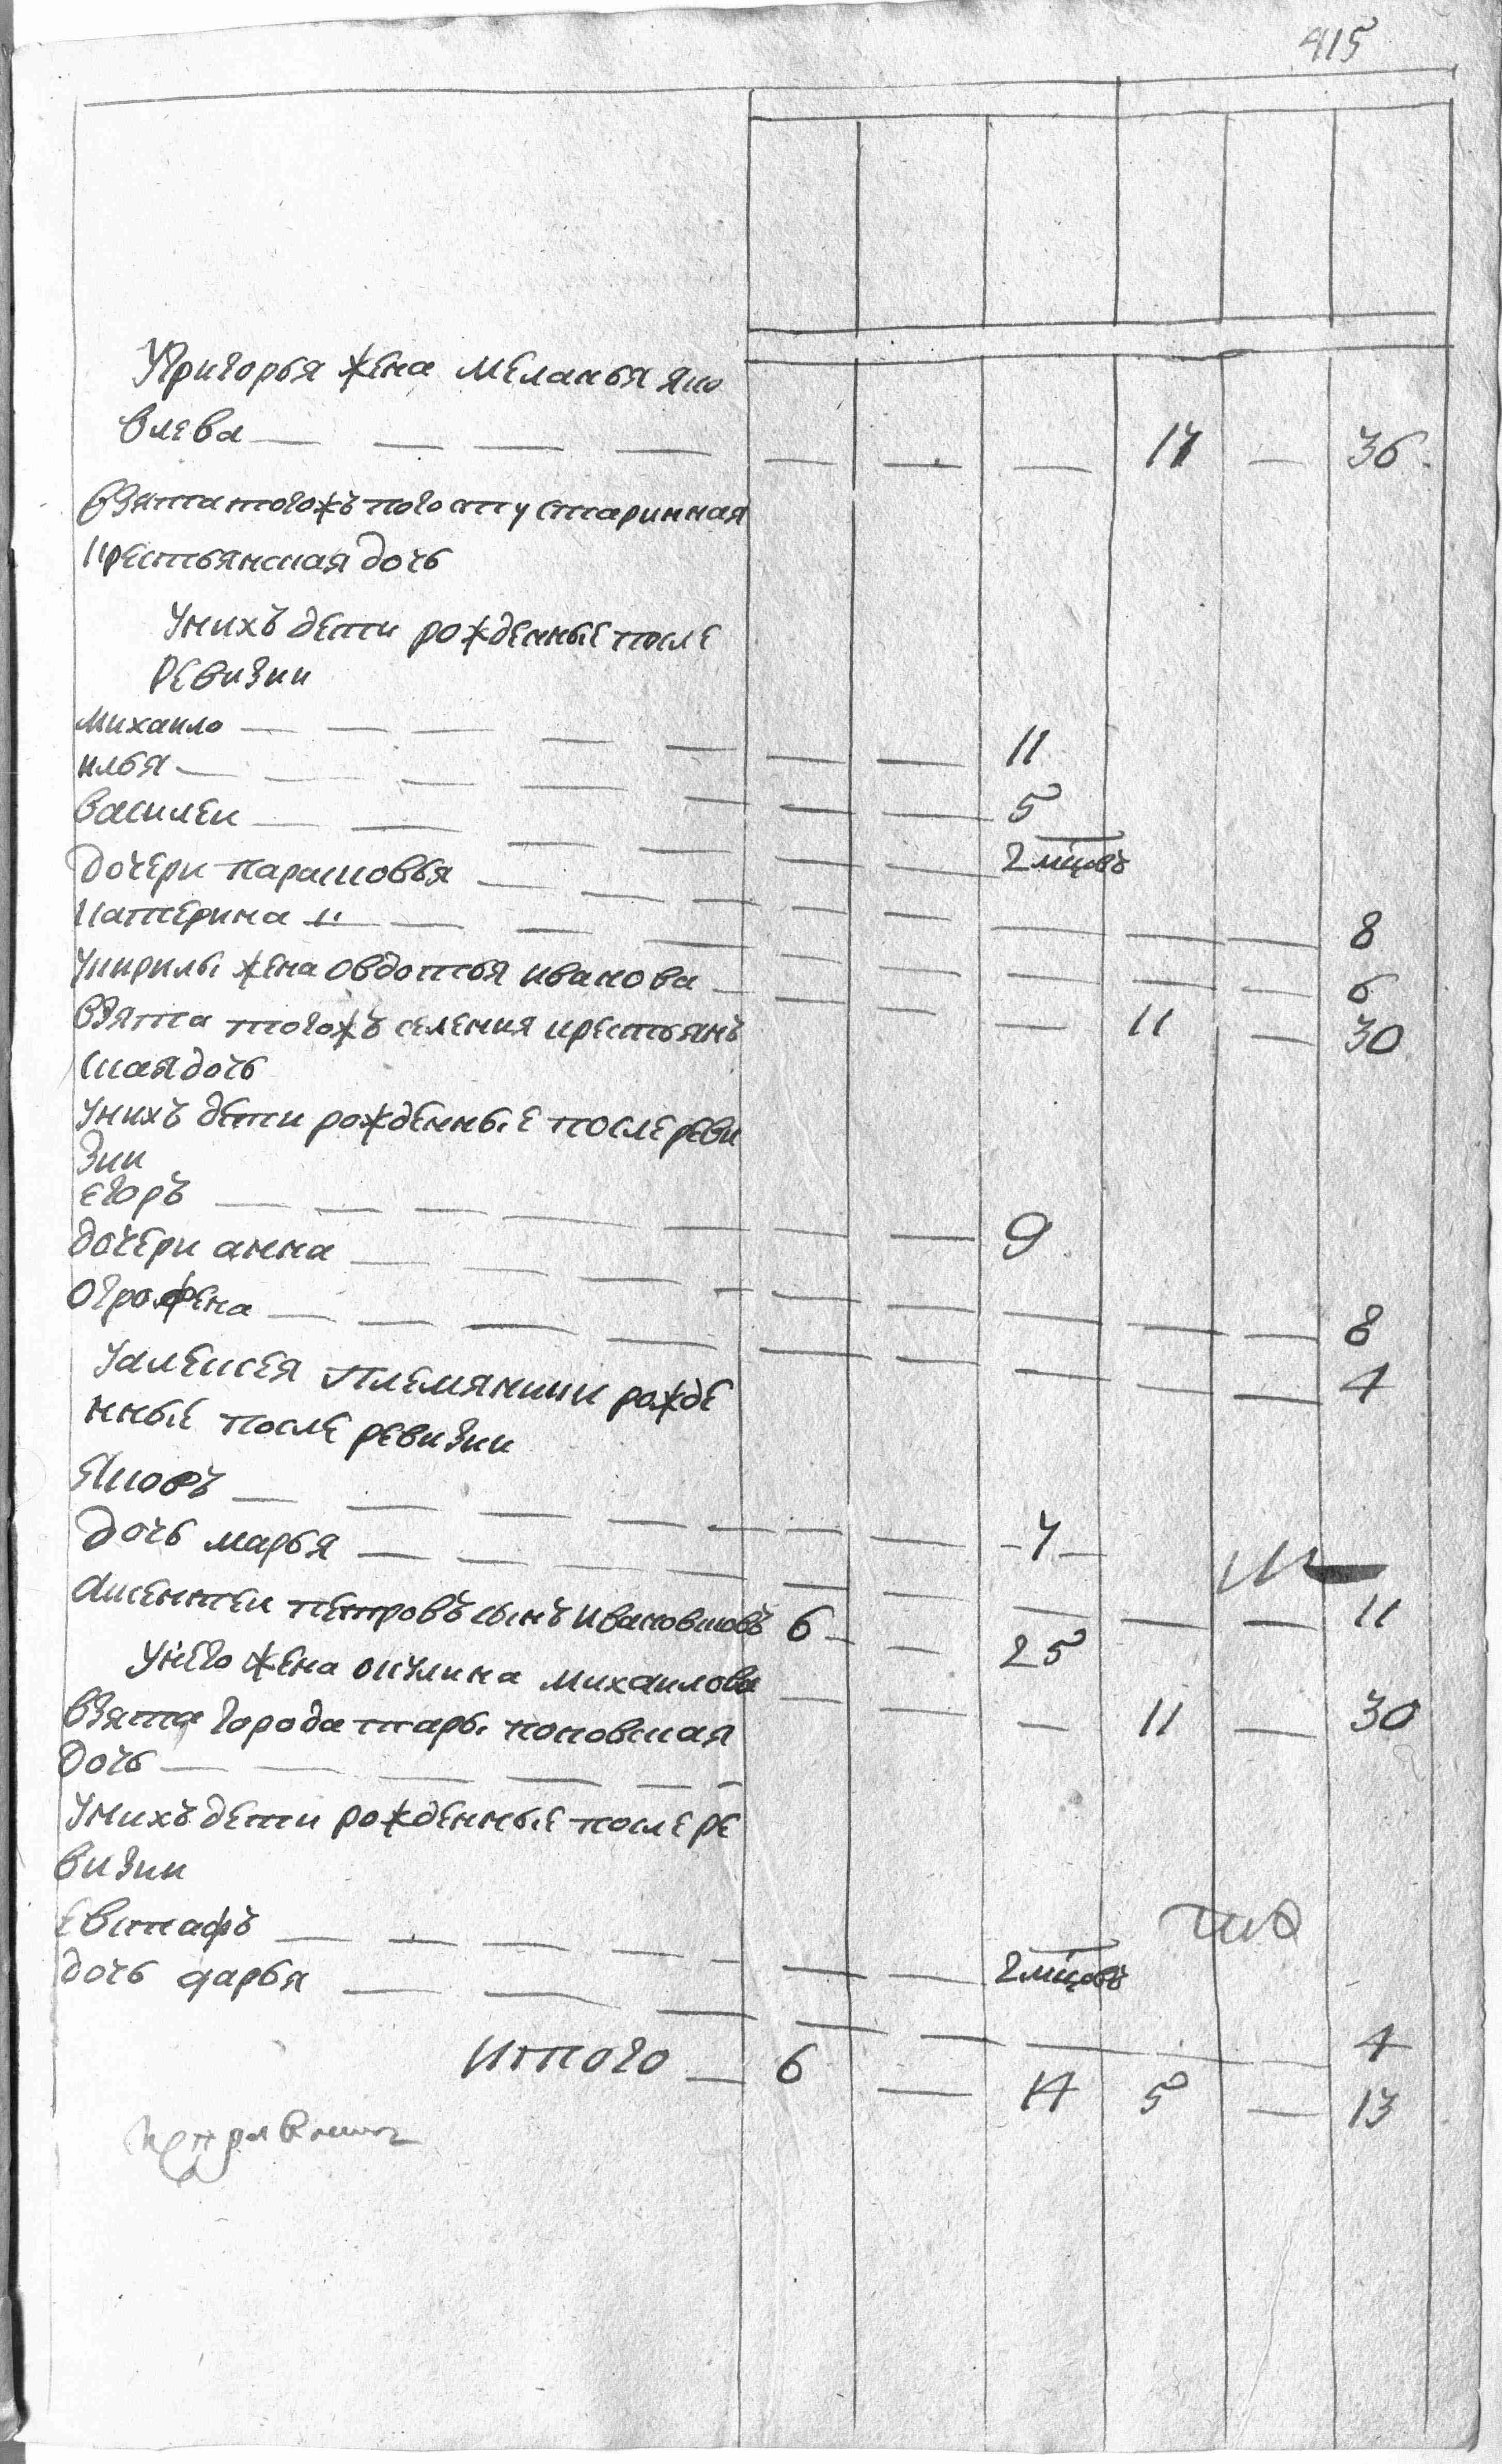 415
Угригорья жена меланья яко
влева — — — — — — — 17 — 36
взята тогожъ погосту старинная
крестьянская дочь
Унихъ дети рожденные после
ревизии
михаило — — — — — — — 11
илья — — — — — — — 5
василеи — — — — — — — 2 мцовъ
дочери парасковья — — — — — — — — 8
катерина — — — — — — — — 6
Укирилы жена овдотья иванова — — — — 11 — 30
взята тогожъ селения крестьянъ
ская дочь
Унихъ дети рожденные после реви
зии
егоръ — — — — — — — 9
дочери анна — — — — — — — — 8
огрофена — — — — — — — — 4
Уалексея племянники рожде
нные после ревизии
яковъ — — — — — — — 7 —
дочь марья — — — — — — — — 11
аксентеи петровъ сынъ ивановсковъ 6 — — 25
Унего жена окулина михаилова — — — 11 — 30
взята города тары поповская
дочь — — — — — —
Унихъ дети рожденные после ре
визии
евстафъ — — — — — — — 2 мцовъ
дочь дарья — — — — — — — — 4
итого — 6 — 14 5 — 13